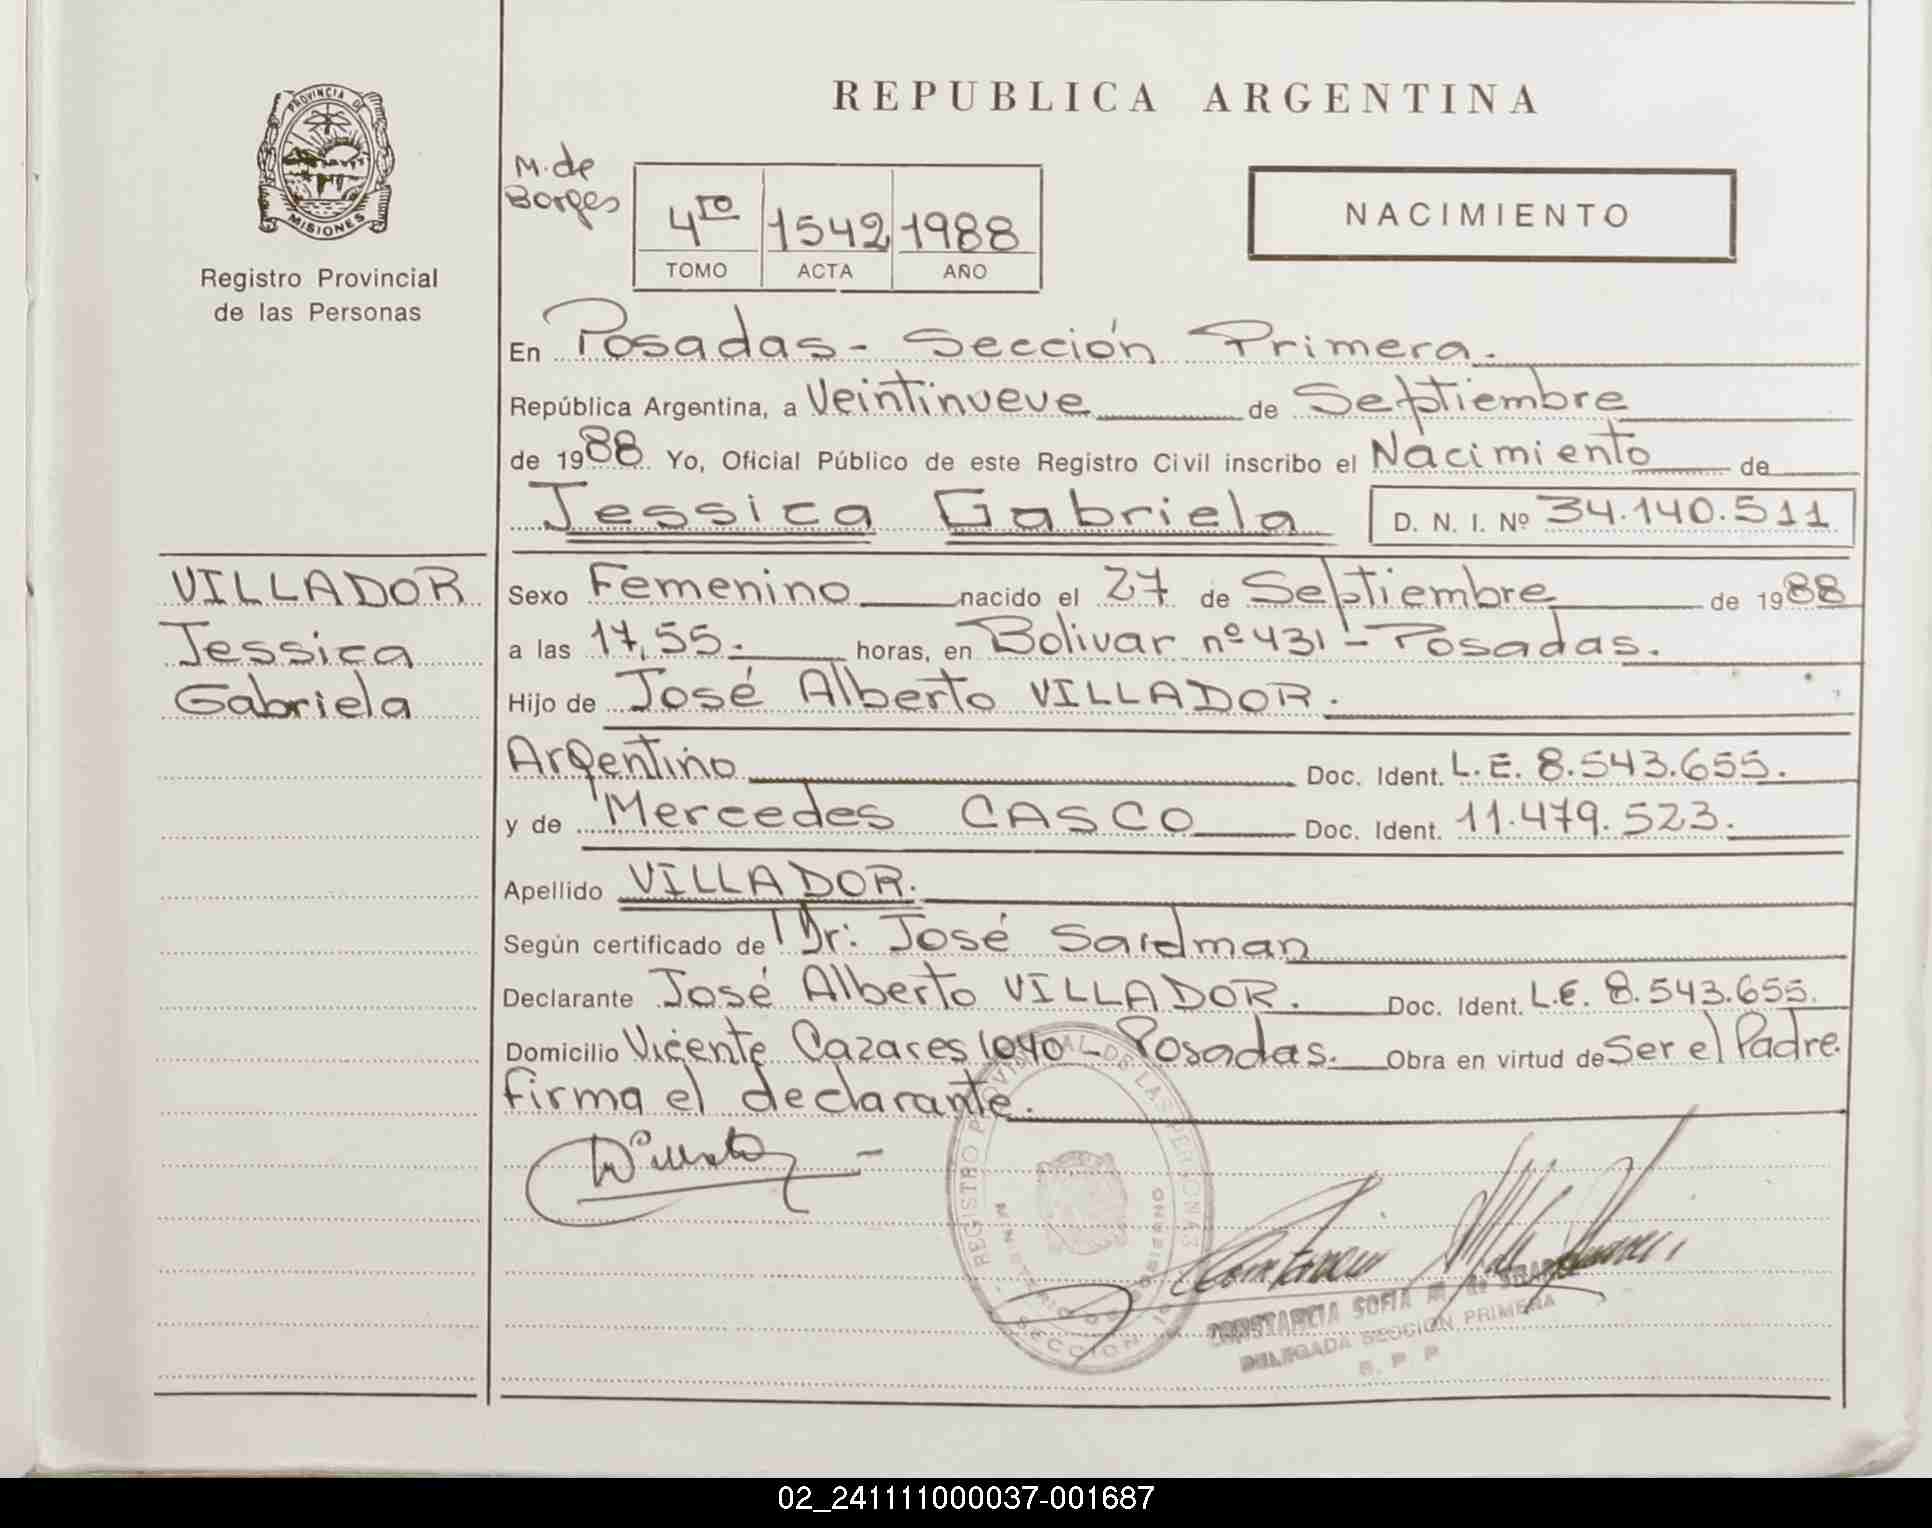 REPUBLICA ARGENTINA
PROVINCIA DE
MISIONES
Registro Provincial
de las Personas
M. de
Borges
4to 1542 1988
TOMO ACTA AÑO
NACIMIENTO
En Posadas - Sección Primera.
República Argentina, a Veintinueve de Septiembre
de 1988 Yo, Oficial Público de este Registro Civil inscribo el Nacimiento de
Jessica Gabriela D. N. I. Nº 34.140.511
VILLADOR
Jessica
Gabriela
Sexo Femenino nacido el 27 de Septiembre de 1988
a las 17,55.- horas, en Bolivar nº 431 - Posadas.
Hijo de José Alberto VILLADOR.
Argentino Doc. Ident. L.E. 8.543.655.
y de Mercedes CASCO Doc. Ident. 11.479.523.
Apellido VILLADOR.
Según certificado de Dr: José Saidman
Declarante José Alberto VILLADOR. Doc. Ident. L.E. 8.543.655.
Domicilio Vicente Cazares 1040 - Posadas. Obra en virtud de Ser el Padre.
firma el declarante.
REGISTRO PROVINCIAL DE LAS PERSONAS
MINISTERIO DE GOBIERNO
SECCION 1
CONSTANCIA SOFIA M. de
DELEGADA SECCION PRIMERA
R. P P
02_241111000037-001687